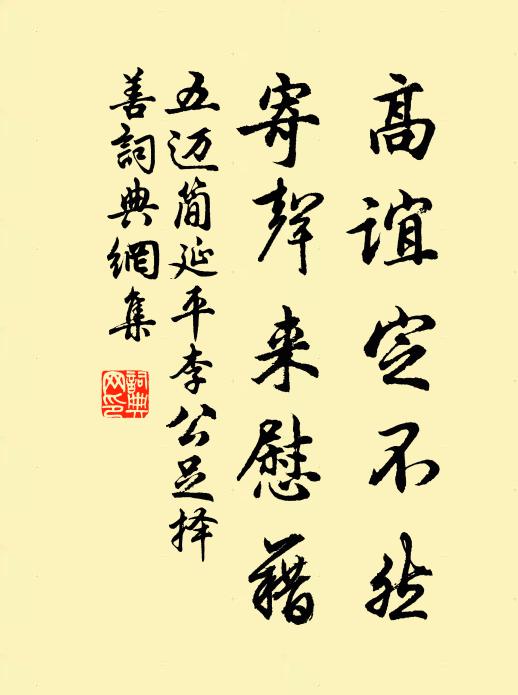 高谊定不然
寄声来慰藉
五迈简延平李公足择
善词典网集
词典网印